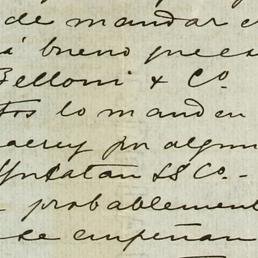 de mandar e
á bueno pues
Belloni & Co.
tos lo manden
por algun
Yucatan SS Co. -
probablement
se empeñan